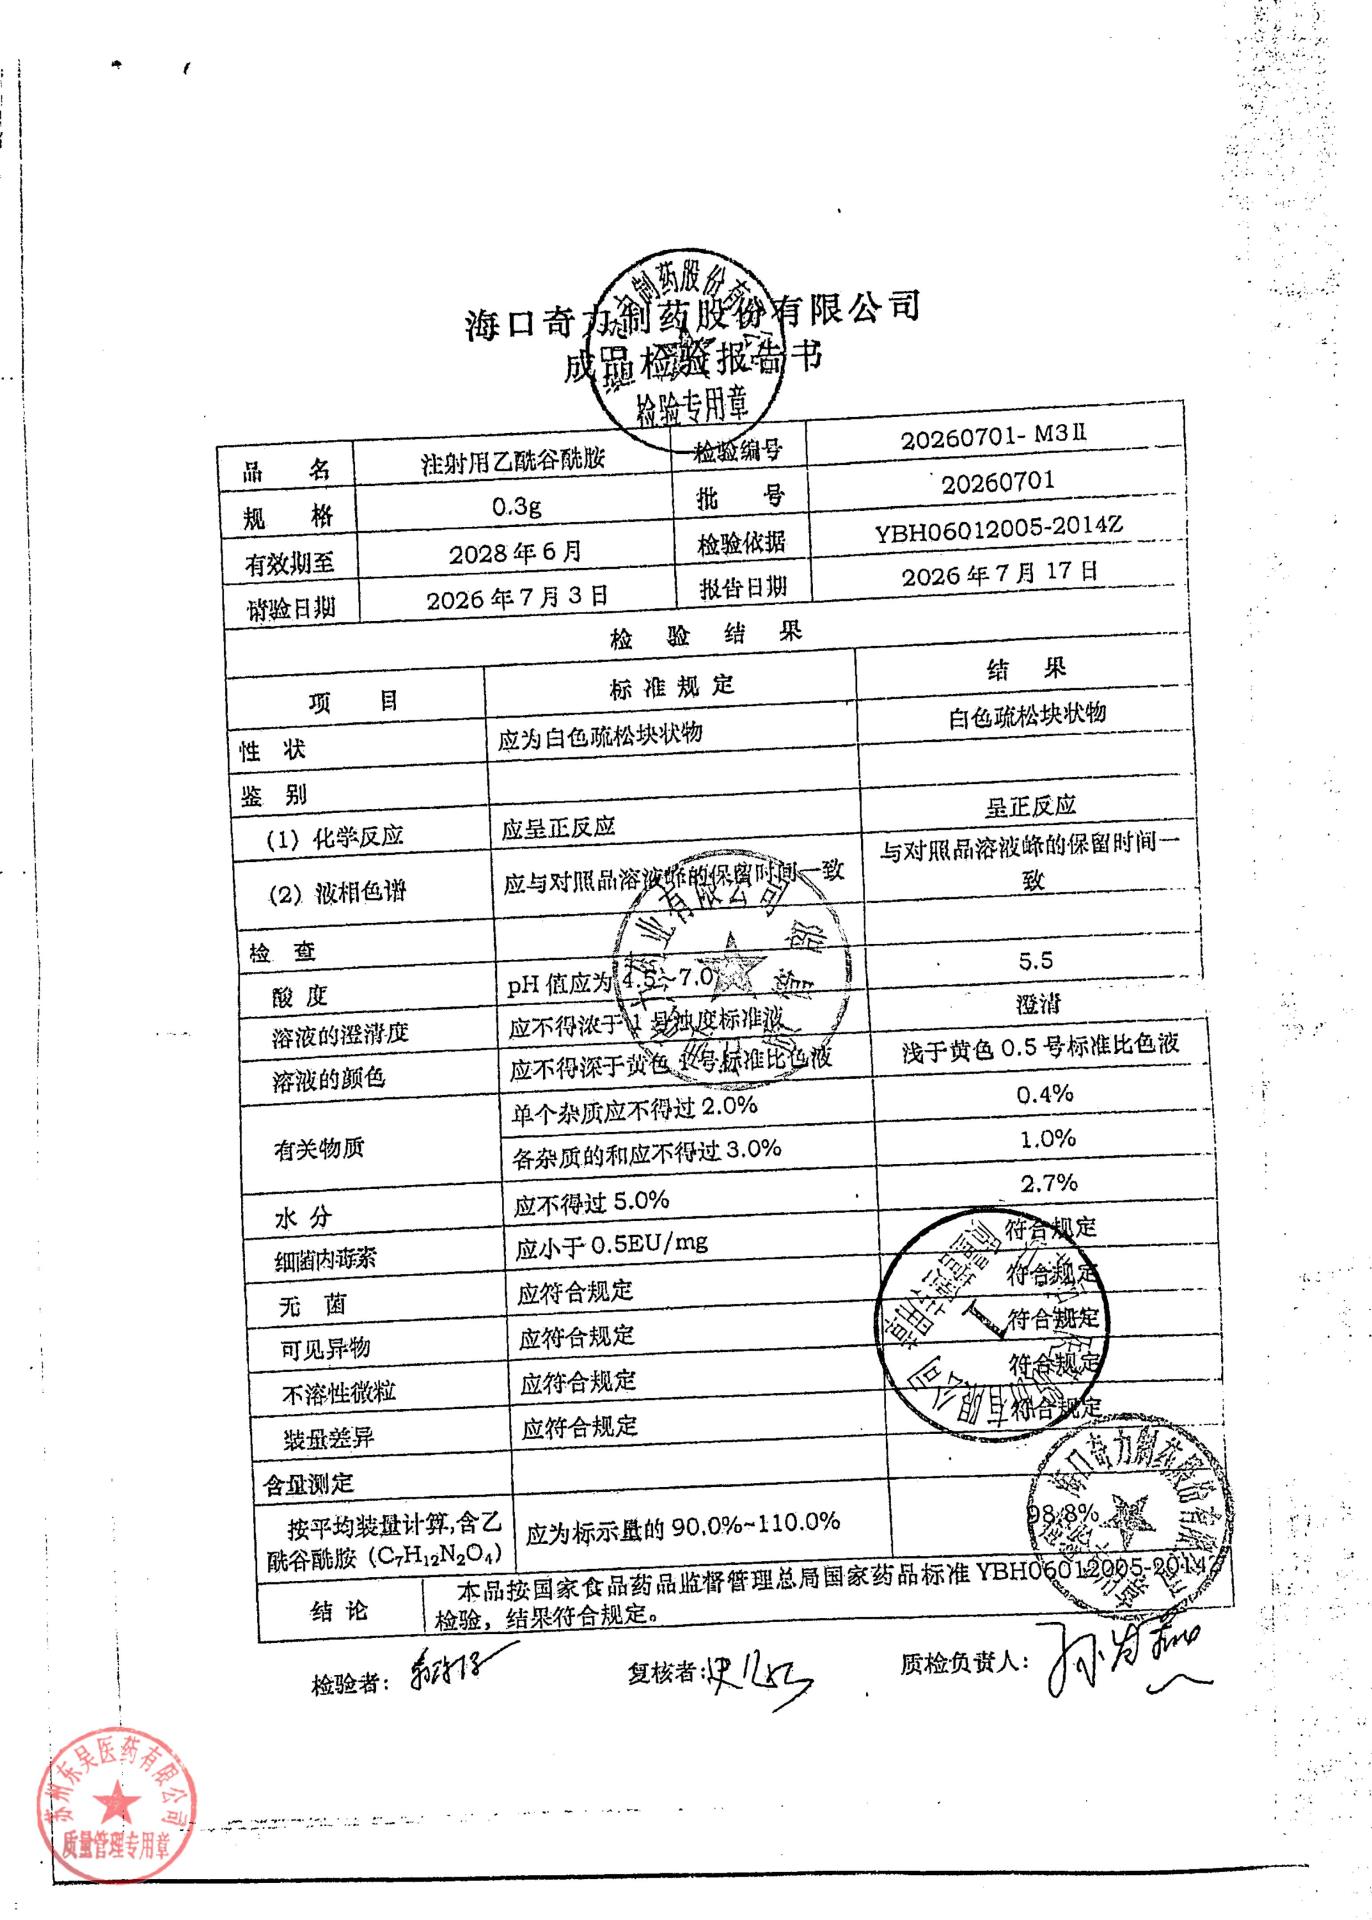 海口奇力制药股份有限公司
成品检验报告书
检验专用章
品 名 注射用乙酰谷酰胺 检验编号 20260701- M3Ⅱ
规 格 0.3g 批 号 20260701
有效期至 2028年6月 检验依据 YBH06012005-2014Z
请验日期 2026年7月3日 报告日期 2026年7月17日
检 验 结 果
项 目 标准规定 结 果
性 状 应为白色疏松块状物 白色疏松块状物
鉴 别
(1) 化学反应 应呈正反应 呈正反应
(2) 液相色谱 应与对照品溶液峰的保留时间一致 与对照品溶液峰的保留时间一
致
检 查
酸 度 pH 值应为 4.5~7.0 5.5
溶液的澄清度 应不得浓于 1 号浊度标准液 澄清
溶液的颜色 应不得深于黄色 1 号标准比色液 浅于黄色 0.5 号标准比色液
有关物质 单个杂质应不得过 2.0% 0.4%
各杂质的和应不得过 3.0% 1.0%
水 分 应不得过 5.0% 2.7%
细菌内毒素 应小于 0.5EU/mg 符合规定
无 菌 应符合规定 符合规定
可见异物 应符合规定 符合规定
不溶性微粒 应符合规定 符合规定
装量差异 应符合规定 符合规定
含量测定
按平均装量计算,含乙
酰谷酰胺（C₇H₁₂N₂O₄） 应为标示量的 90.0%~110.0% 98.8%
结 论 本品按国家食品药品监督管理总局国家药品标准 YBH06012005-2014Z
检验，结果符合规定。
检验者: 复核者: 质检负责人:
海口奇力制药股份有限公司
苏州东吴医药有限公司
质量管理专用章